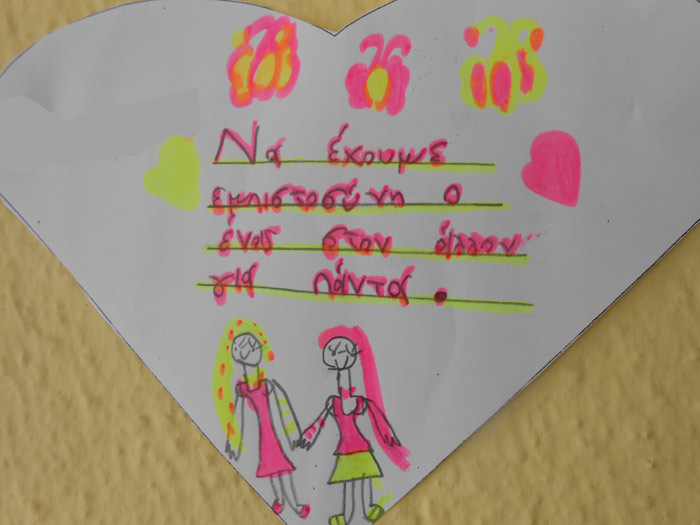 Να έχουμε
εμπιστοσύνη ο
ένας στον άλλον
για πάντα.